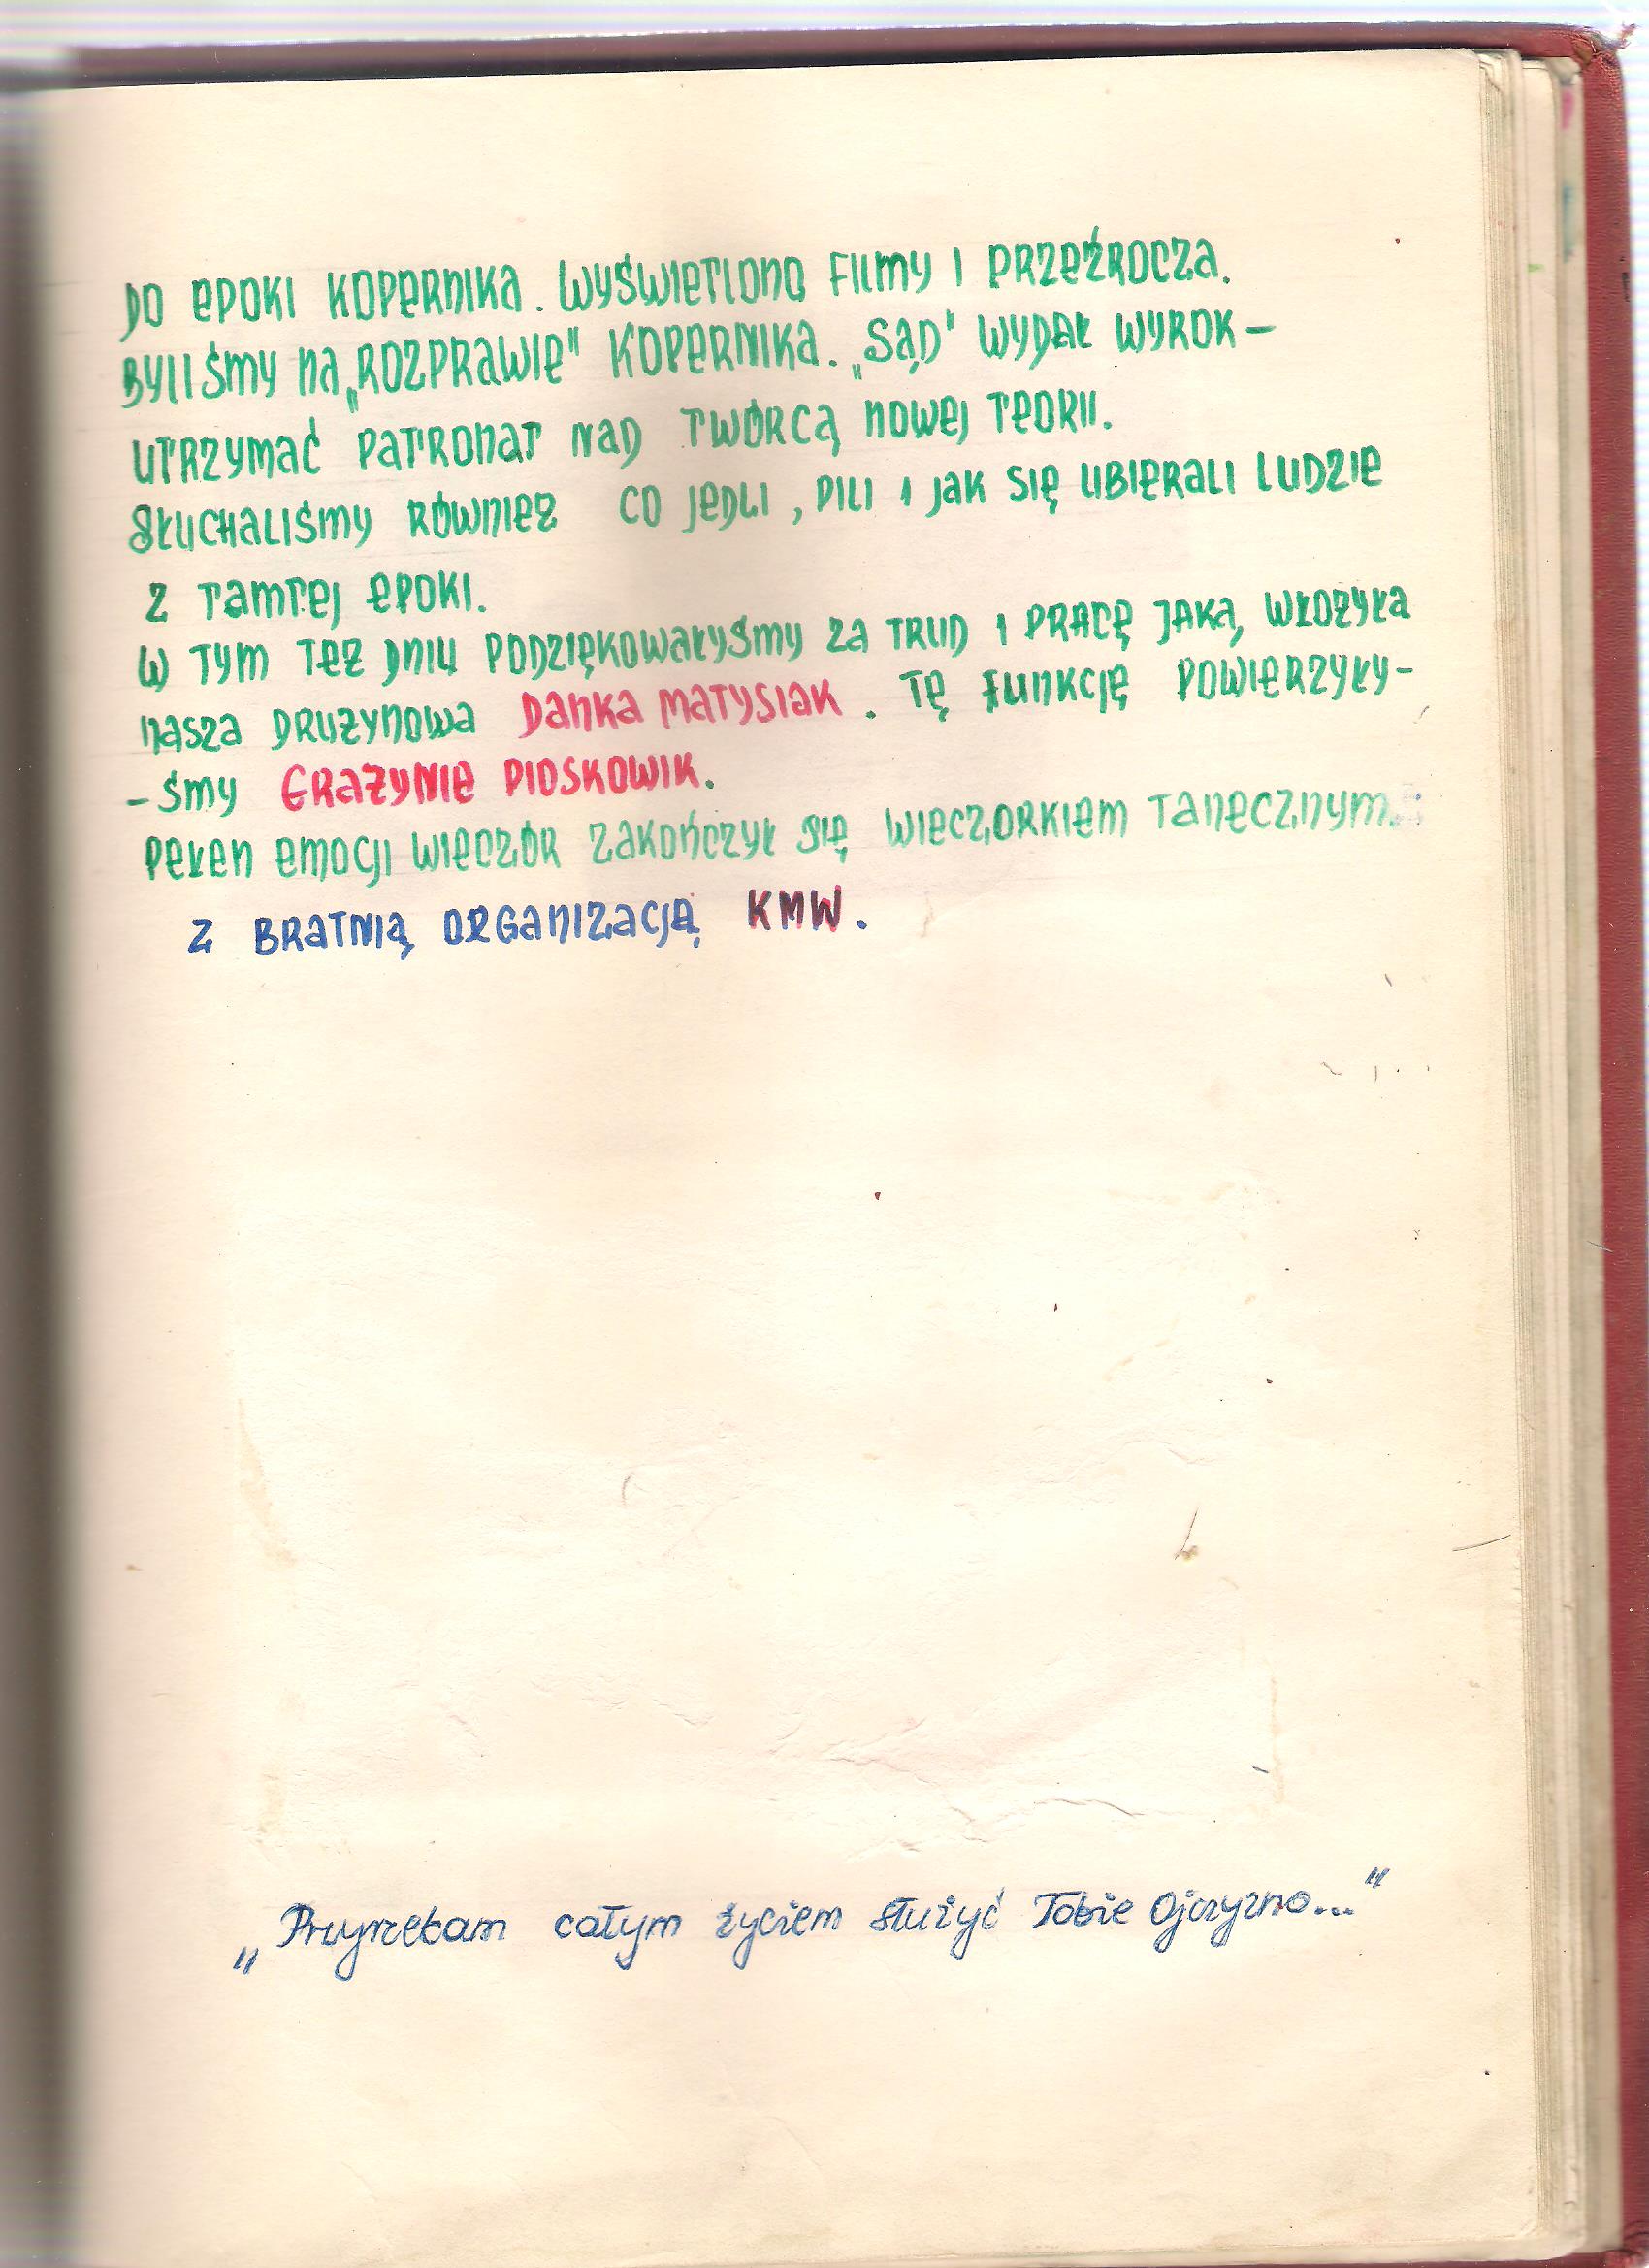 DO EPOKI KOPERNIKA. WYŚWIETLONO FILMY I PRZEŹROCZA.
BYLIŚMY NA „ROZPRAWIE" KOPERNIKA. „SĄD" WYDAŁ WYROK –
UTRZYMAĆ PATRONAT NAD TWÓRCĄ NOWEJ TEORII.
SŁUCHALIŚMY RÓWNIEZ CO JEDLI, PILI I JAK SIĘ UBIERALI LUDZIE
Z TAMTEJ EPOKI.
W TYM TEZ DNIU PODZIĘKOWAŁYŚMY ZA TRUD I PRACĘ JAKĄ WŁOŻYŁA
NASZA DRUŻYNOWA DANKA MATYSIAK. TĘ FUNKCJĘ POWIERZYŁY-
-ŚMY GRAŻYNIE PIOSKOWIK.
PEŁEN EMOCJI WIECZÓR ZAKOŃCZYŁ SIĘ WIECZORKIEM TANECZNYM
Z BRATNIĄ ORGANIZACJĄ KMW.
„Przyrzekam całym życiem służyć Tobie Ojczyzno..."